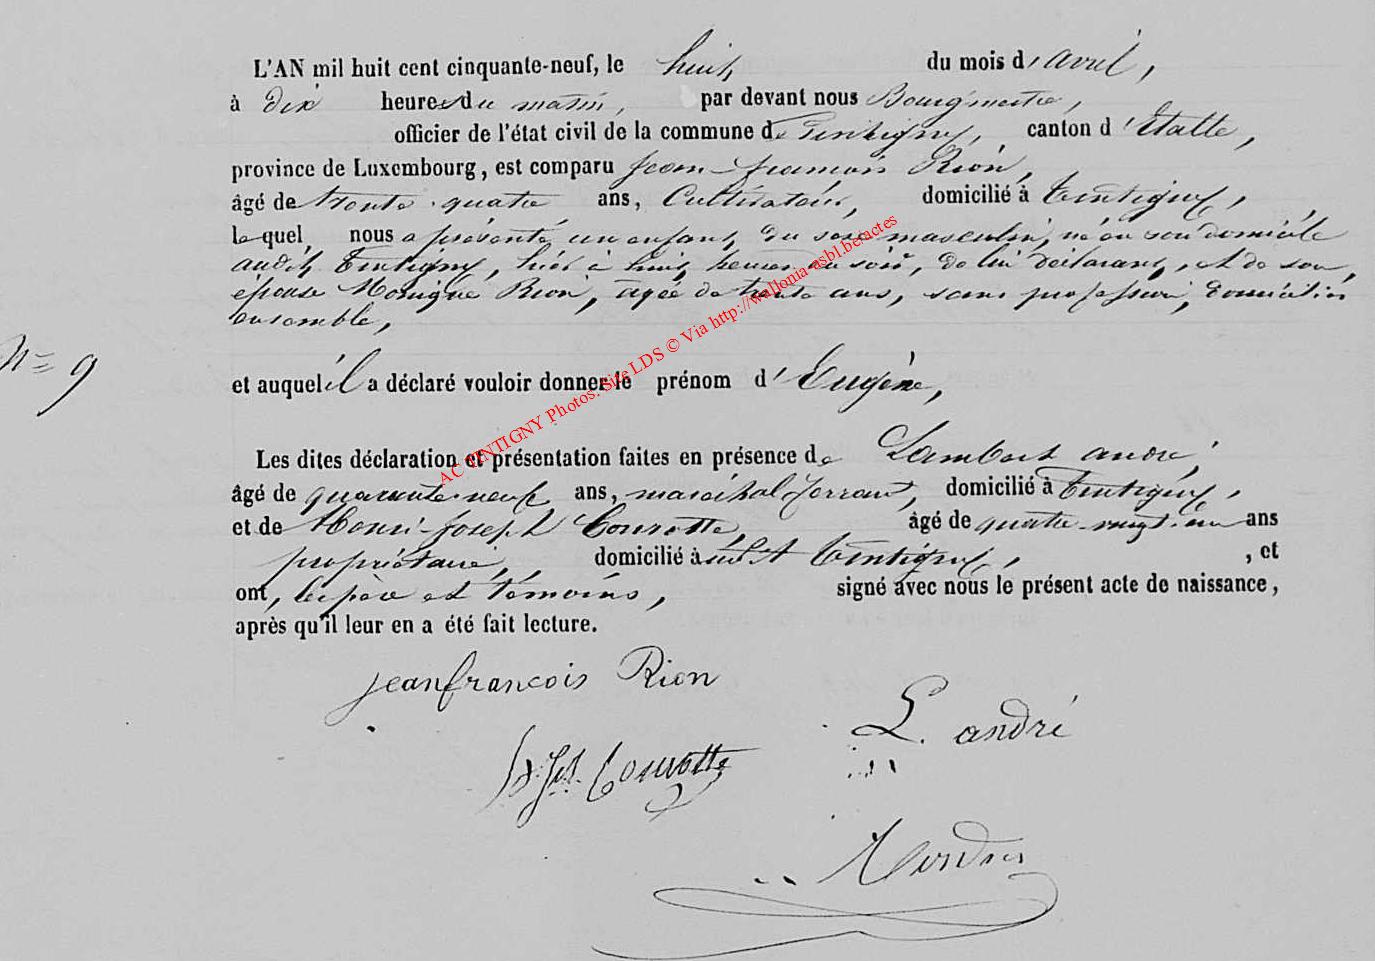 L'AN mil huit cent cinquante-neuf, le huit du mois d'avril,
à dix heures du matin, par devant nous Bourgmestre,
officier de l'état civil de la commune de Tintigny, canton d'Etalle,
province de Luxembourg, est comparu Jean-françois Rion,
âgé de trente-quatre ans, Cultivateur, domicilié à Tintigny,
le quel, nous a présenté un enfant du sexe masculin, né en son domicile
audit Tintigny, hier à huit heures du soir, de lui déclarant, et de son
épouse Monique Rion, agée de trente ans, sans profession, domiciliés
ensemble,
N= 9
et auquel il a déclaré vouloir donner le prénom d'Eugène,
Les dites déclaration et présentation faites en présence de Lambert andré,
âgé de quarante-neuf ans, maréchal ferrant, domicilié à Tintigny,
et de Henri-Joseph Courotte, âgé de quatre-vingt-un ans
propriétaire, domicilié à Tintigny, , et
ont, les père et témoins, signé avec nous le présent acte de naissance,
après qu'il leur en a été fait lecture.
jeanfrancois Rion
L. andré
h. Jh. Courotte
AC TINTIGNY Photos: Site LDS © Via http://wallonia-asbl.be/actes